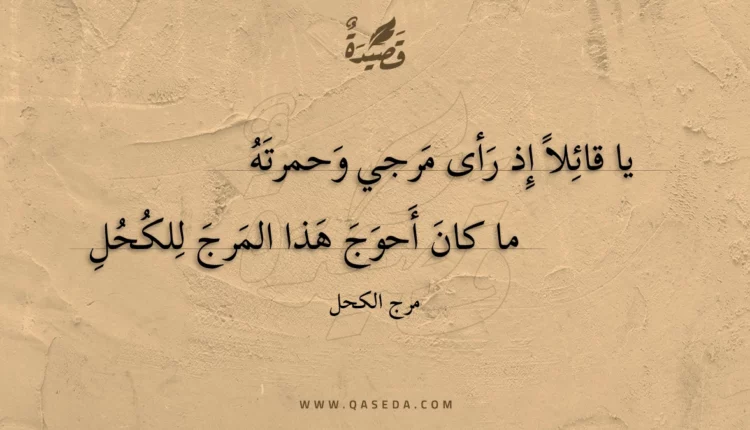 قَصِيدَةٌ
يا قائِلاً إِذ رَأى مَرجي وَحمرتَهُ
ما كانَ أَحوَجَ هَذا المَرجَ لِلكُحُلِ
مرج الكحل
WWW.QASEDA.COM